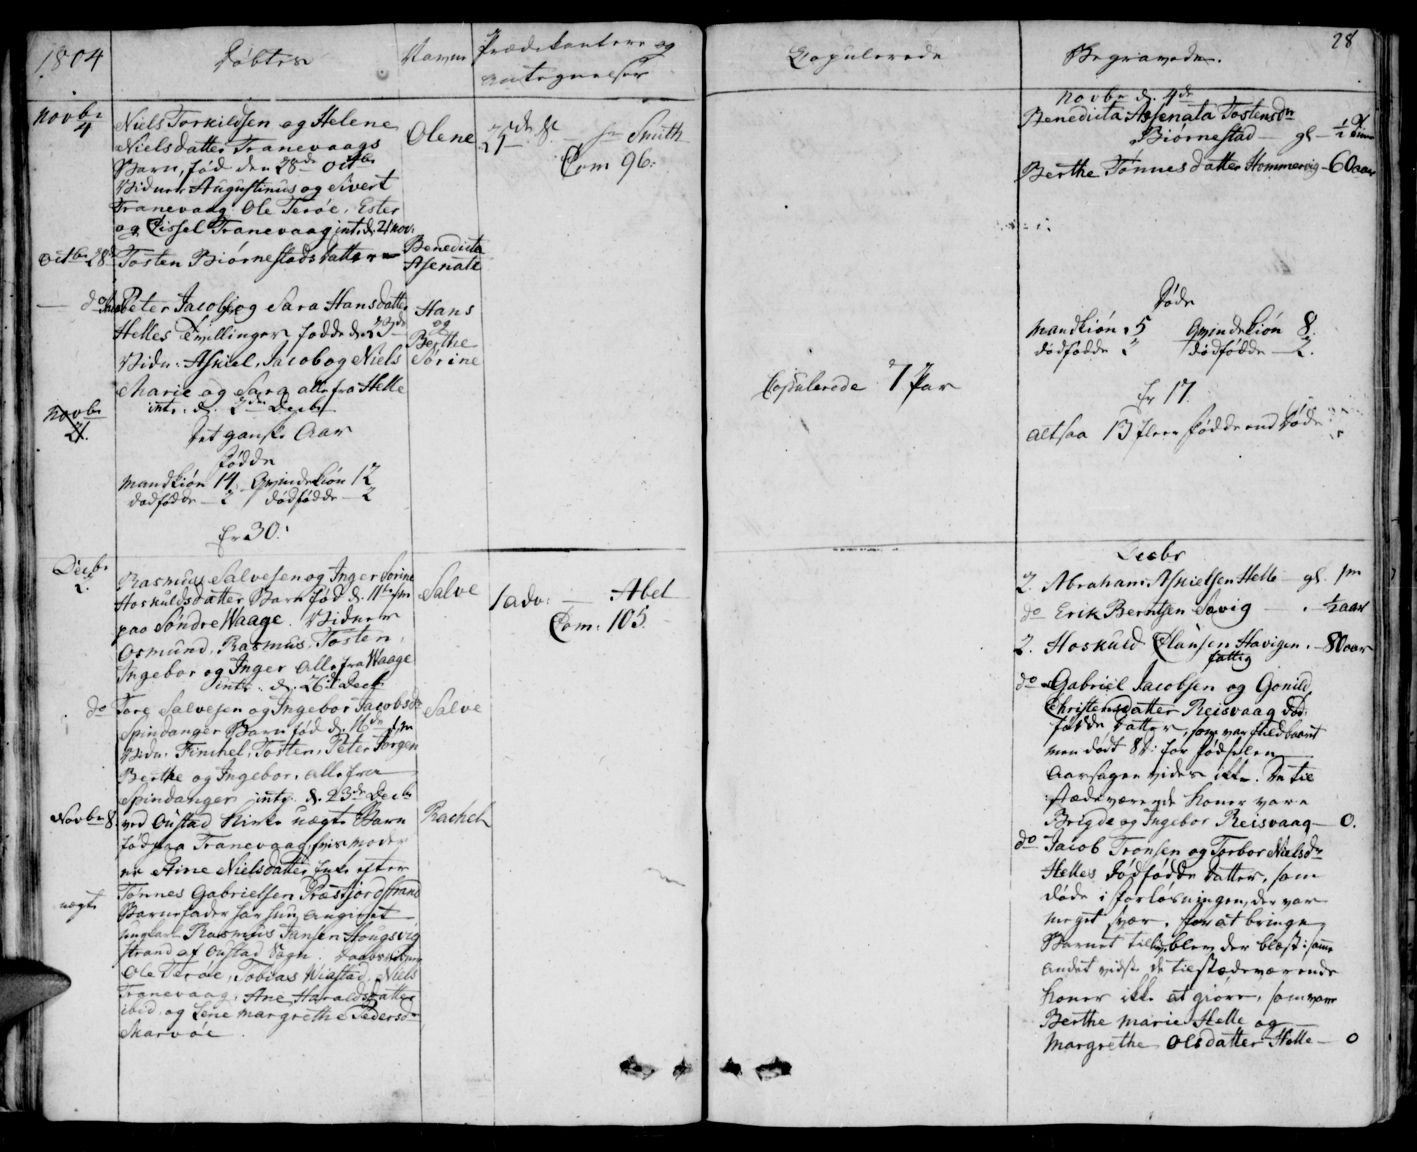 1804
Døbte
Navne
Prædikantere og
antegnelser
Novbr
4
Niels Torkildsen og Helene
Nielsdatter Tranevaags
Barn, fød den 28de Octbr
Vidner Augustinus og Sivert
Tranevaag, Ole Terøe, Ester
og Cissel Tranevaag int. d. 21 Nov.
Olene
25de
Sr Smith
Com 96.
Octbr 28de
Tosten Biørnestads datter
Benedicta
Asenate
do
Peter Jacobs og Sara Hansdatter
Helles Tvillinger fødde d. 23de
Vidn: Askiel, Jacob og Niels
Marie og Sara alle fra Helle
intr. d. 2den Decbr
Hans
og
Berthe
Sørine
Novbr
21.
Det ganske Aar
fødde
Mandkiøn 14. Qvindekiøn 12
dødfødde 2 dødfødde 2
Er 30.
Decbr
2.
Rasmus Salvesen og Inger Sørine
Hoskuldsdatter Barn fød d. 11te
paa Søndre Waage. Vidner
Osmund, Rasmus, Tosten,
Ingebor og Inger alle fra Waage
intr. d. 26de Decbr
Salve
1 adv:
Abel
Com. 105.
do
Tore Salvesen og Ingebor Jacobsdr
Spindanger Barn fød d. 16de
Vidn. Finchel, Tosten, Peter Jørgen
Berthe og Ingebor, alle fra
Spindanger intr. d. 23de Decbr
Salve
Novbr 8.
ved Oustad Kirke uægte Barn
fød fra Tranevaag, hvis moder
er Stine Nielsdatter Enke efter
Tønnes Gabrielsen Præstfjord strand
Barnefader har hun angivet
ungkarl Rasmus Jansen Hougsvig
strand af Oustad Sogn.
Ole Terøe, Tobias Wiastad, Niels
Tranevaag, Ane Haraldsdatter
ibid. og Lene Margrethe Pedersdr
Skarvøe.
Rachel
uægte
Copulerede
Copulerede 7 Par
28
Begravede.
Novbr d. 4de
Benedicta Asenata Tostensdr
Biørnestad gl. ½
Berthe Tønnesdatter Hommervig 60 aar
Døde
Mandkiøn 5 Qvindekiøn 8.
dødfødde 2 dødfødde 2.
Er 17.
altsaa 13 flere fødde end Døde
Decbr
2. Abraham Askielsen Helle gl. 1 m
do Erik Berntsen Savig ½ aar
2. Hoskuld Clausen Havigen 80 aar
fattig
do Gabriel Jacobsen og Gonild
Christensdatter Reisvaag død
fødde datter, som var fuldbaaret
men dødt 8 d: før fødselen
Aarsagen vides ikke. De til
stædeværende koner vare
Brigde og Ingebor Reisvaag 0.
do Jacob Tronsen og Torbor Nielsdr
Helles dødfødde datter, som
døde i forløsningen, der var
meget svær, for at bringe
Barnet til liv blev der blæst i samme
andet vidste de tilstædeværende
koner ikke at giøre, som vare
Berthe Marie Helle og
Margrethe Olsdatter Helle 0